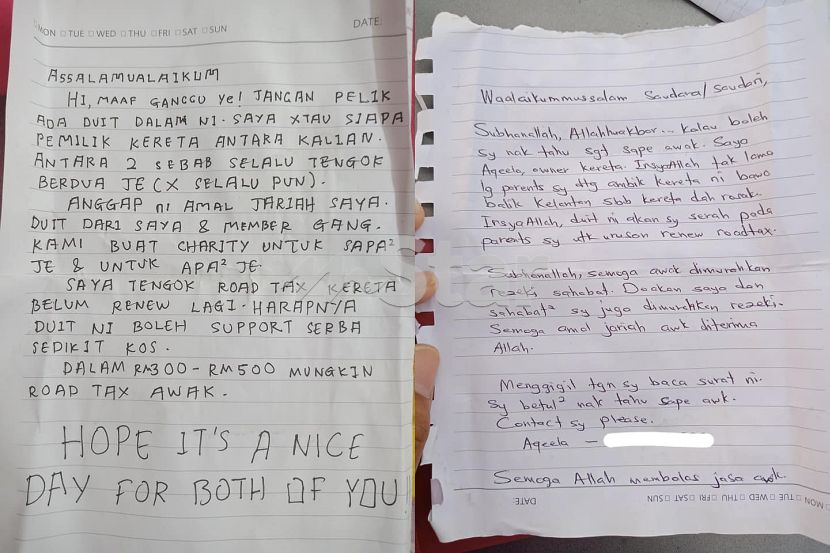 MON TUE WED THU FRI SAT SUN
DATE:
ASSALAMUALAIKUM
HI, MAAF GANGGU Ye! JANGAN PELIK
ADA DUIT DALAM NI. SAYA XTAU SIAPA
PEMILIK KERETA ANTARA KALIAN.
ANTARA 2 SEBAB SELALU TENGOK
BERDUA JE (X SELALU PUN).
ANGGAP ni AMAL JARIAH SAYA.
DUIT DARI SAYA & MEMBER GANG.
KAMI BUAT CHARITY UNTUK SAPA²
JE & UNTUK APA² JE.
SAYA TENGOK ROAD TAX KERETA
BELUM RENEW LAGI. HARAPNYA
DUIT NI BOLEH SUPPORT SERBA
SEDIKIT KOS.
DALAM RM300 - RM500 MUNGKIN
ROAD TAX AWAK.
HOPE IT'S A NICE
DAY FOR BOTH OF YOU
Waalaikummussalam Saudara/saudari,
Subhanallah, Allahhuakbar... kalau boleh
sy nak tahu sgt sape awak. Saya
Aqeela, owner kereta. InsyaAllah tak lama
lg parents sy dtg ambik kereta ni bawa
balik Kelantan sbb kereta dah rosak.
InsyaAllah, duit ni akan sy serah pada
parents sy utk urusan renew roadtax.
Subhanallah, semoga awak dimurahkan
rezeki sahabat. Doakan saya dan
sahabat² sy juga dimurahkan rezeki.
Semoga amal jariah awk diterima
Allah.
Menggigil tgn sy baca surat ni.
Sy betul² nak tahu sape awk.
Contact sy please.
Aqeela -
Semoga Allah membalas jasa awk
DATE:
MON TUE WED THU FRI SAT SUN